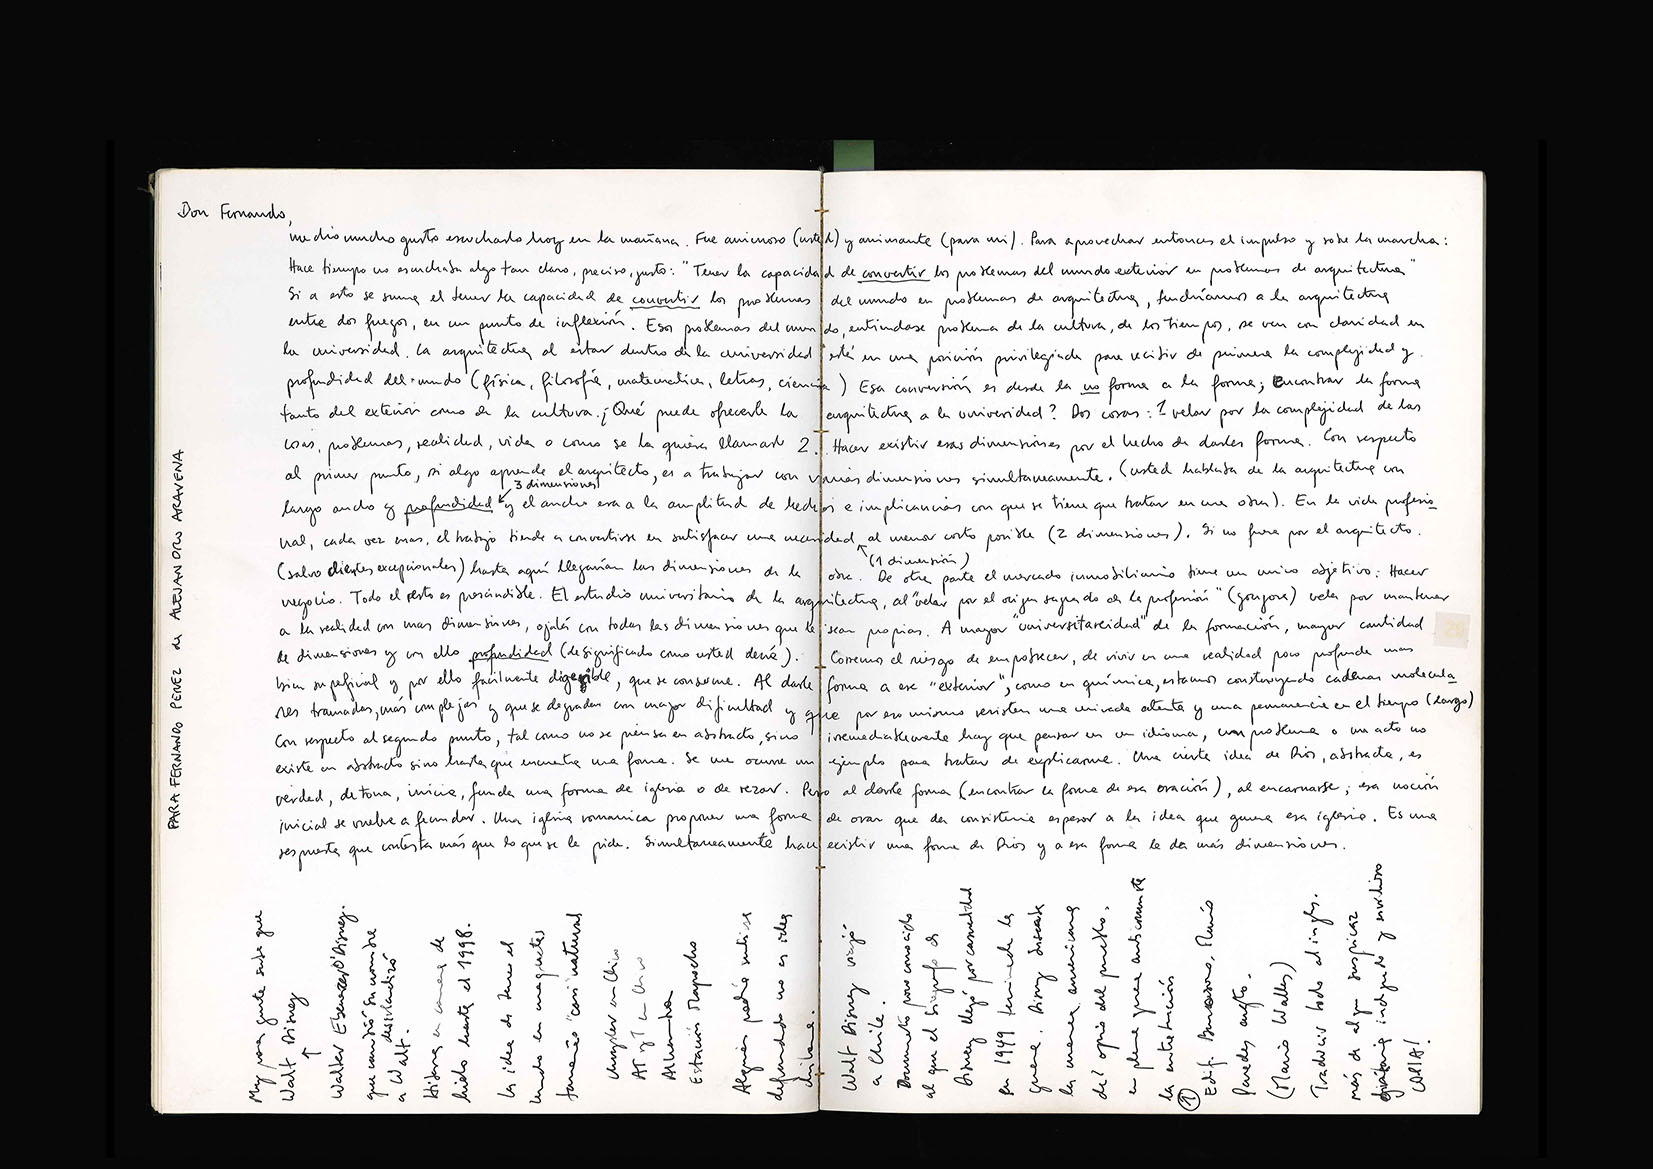 Don Fernando,
me dio mucho gusto escucharlo hoy en la mañana. Fue animoso (usted) y animante (para mi). Para aprovechar entonces el impulso y sobre la marcha:
Hace tiempo no escuchaba algo tan claro, preciso, justo: "Tener la capacidad de convertir los problemas del mundo exterior en problemas de arquitectura"
Si a esto se suma el tener la capacidad de convertir los problemas del mundo en problemas de arquitectura, tendríamos a la arquitectura
entre dos fuegos, en un punto de inflexión. Esos problemas del mundo, entiendase problema de la cultura, de los tiempos, se ven con claridad en
la universidad. La arquitectura al estar dentro de la universidad está en una posición privilegiada para recibir de primera la complejidad y
profundidad del mundo (física, filosofía, matematica, letras, ciencia) Esa conversión es desde la no forma a la forma; encontrar la forma
tanto del exterior como de la cultura. ¿Qué puede ofrecerle la arquitectura a la universidad? Dos cosas: 1 velar por la complejidad de las
cosas, problemas, realidad, vida o como se la quiera llamar 2. Hacer existir esas dimensiones por el hecho de darles forma. Con respecto
al primer punto, si algo aprende el arquitecto, es a trabajar con varias dimensiones simultaneamente. (usted hablaba de la arquitectura con
3 dimensiones
largo ancho y profundidad y el ancho era a la amplitud de hechos e implicancias con que se tiene que tratar en una obra). En la vida profesio
nal, cada vez mas, el trabajo tiende a convertirse en satisfacer una necesidad al menor costo posible (2 dimensiones). Si no fuera por el arquitecto
(1 dimensión)
(salvo clientes excepcionales) hasta aquí llegarían las dimensiones de la obra. De otra parte el mercado inmobiliario tiene un unico objetivo: Hacer
negocio. Todo el resto es prescindible. El estudio universitario de la arquitectura, al "velar por el origen sagrado de la profesión" (gongora) vela por mantener
a la realidad con mas dimensiones, ojalá con todas las dimensiones que le sean propias. A mayor "universitareidad" de la formación, mayor cantidad
de dimensiones y con ello profundidad (de significado como usted decía). Corremos el riesgo de empobrecer, de vivir en una realidad poco profunda mas
bien superficial y por ello facilmente digerible, que se consume. Al darle forma a ese "exterior", como en química, estamos construyendo cadenas molecula
res tramadas, mas complejas y que se degradan con mayor dificultad y que por eso mismo resisten una mirada atenta y una permanencia en el tiempo (largo)
Con respecto al segundo punto, tal como no se piensa en abstracto, sino irremediablemente hay que pensar en un idioma, un problema o un acto no
existe en abstracto sino hasta que encuentra una forma. Se me ocurre un ejemplo para tratar de explicarme. Una cierta idea de Dios, abstracta, es
verdad, detona, inicia, funda una forma de iglesia o de rezar. Pero al darle forma (encontrar la forma de esa oración), al encarnarse; esa noción
inicial se vuelve a fecundar. Una iglesia romanica propone una forma de orar que da consistencia espesor a la idea que genera esa iglesia. Es una
respuesta que contesta más que lo que se le pide. Simultaneamente hace existir una forma de Dios y a esa forma le da más dimensiones.
PARA FERNANDO PEREZ de ALEJANDRO ARAVENA
Muy poca gente sabe que
Walt Disney
Walter Disney.
que cambió su nombre
a Walt.
hielo hasta el 1998.
La idea de tener el
mundo en maquetas
tamaño casi natural
Chrysler en Chico
AT y T en Chico
Alhambra
Estación Mapocho
Alguien podría
defraudado no es idea
Walt Disney viajó
a Chile.
Documento poco conocido
al que el biografo de
Disney llegó por casualidad
en 1949 terminada la
guerra. Disney
la manera americana
del opio del pueblo.
en plena guerra
la
1
Edif. Mario
Paredes
(Mario Valles)
Traducir todo al ingles.
más de algun suspicaz
indignado y envidioso
CHILE!